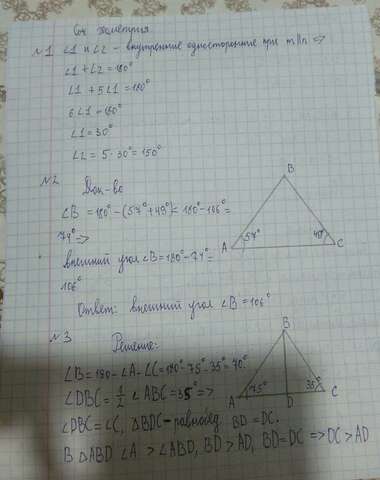 С/р геометрия
№1 ∠1 и ∠2 - внутренние односторонние при m||n =>
∠1 + ∠2 = 180°
∠1 + 5∠1 = 180°
6∠1 = 180°
∠1 = 30°
∠2 = 5 · 30° = 150°
№2
Док-во
∠B = 180° - (57° + 49°) = 180° - 106° =
74° =>
внешний угол ∠B = 180° - 74° =
106°
Ответ: внешний угол ∠B = 106°
B
57°
49°
A
C
№3
Решение:
∠B = 180 - ∠A - ∠C = 180° - 75° - 35° = 70°
∠DBC = 1/2 ∠ABC = 35° =>
∠DBC = ∠C, △BDC - равнобед. BD = DC.
В △ABD ∠A > ∠ABD, BD > AD, BD = DC => DC > AD
B
75°
35°
A
D
C